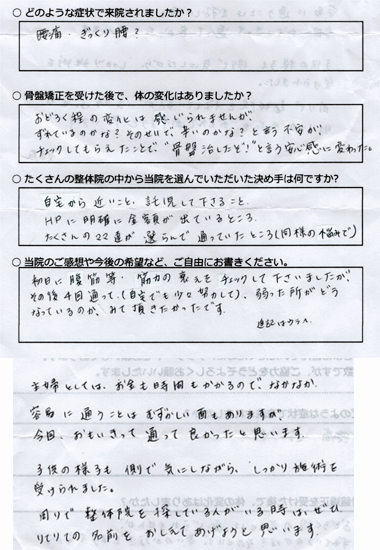 ○ どのような症状で来院されましたか？
腰痛・ぎっくり腰？
○ 骨盤矯正を受けた後で、体の変化はありましたか？
おどろく程の変化は感じられませんが、
ずれているのかな？そのせいで辛いのかな？と言う不安が、
チェックしてもらえたことで“骨盤治したぞ！”と言う安心感に変わった。
○ たくさんの整体院の中から当院を選んでいただいた決め手は何ですか？
自宅から近いこと、託児して下さること、
HPに明確に金額が出ているところ。
たくさんのママ達が選らんで通っていたところ(同様の悩みで)
○ 当院のご感想や今後の希望など、ご自由にお書きください。
初日に腹筋等・筋力の衰えをチェックして下さいましたが、
その後4回通って、(自宅でも少々努力して)、弱った所がどう
なっているのか、みて頂きたかったです。
追記はウラへ
主婦としては、お金も時間もかかるので、なかなか
容易に通うことはむずかしい面もありますが、
今回、おもいきって通って良かったと思います。
子供の様子も側で気にしながら、しっかり施術を
受けられました。
周りで整体院を探している人がいる時は、ぜひ
りてりての名前をおしえてあげようと思います。